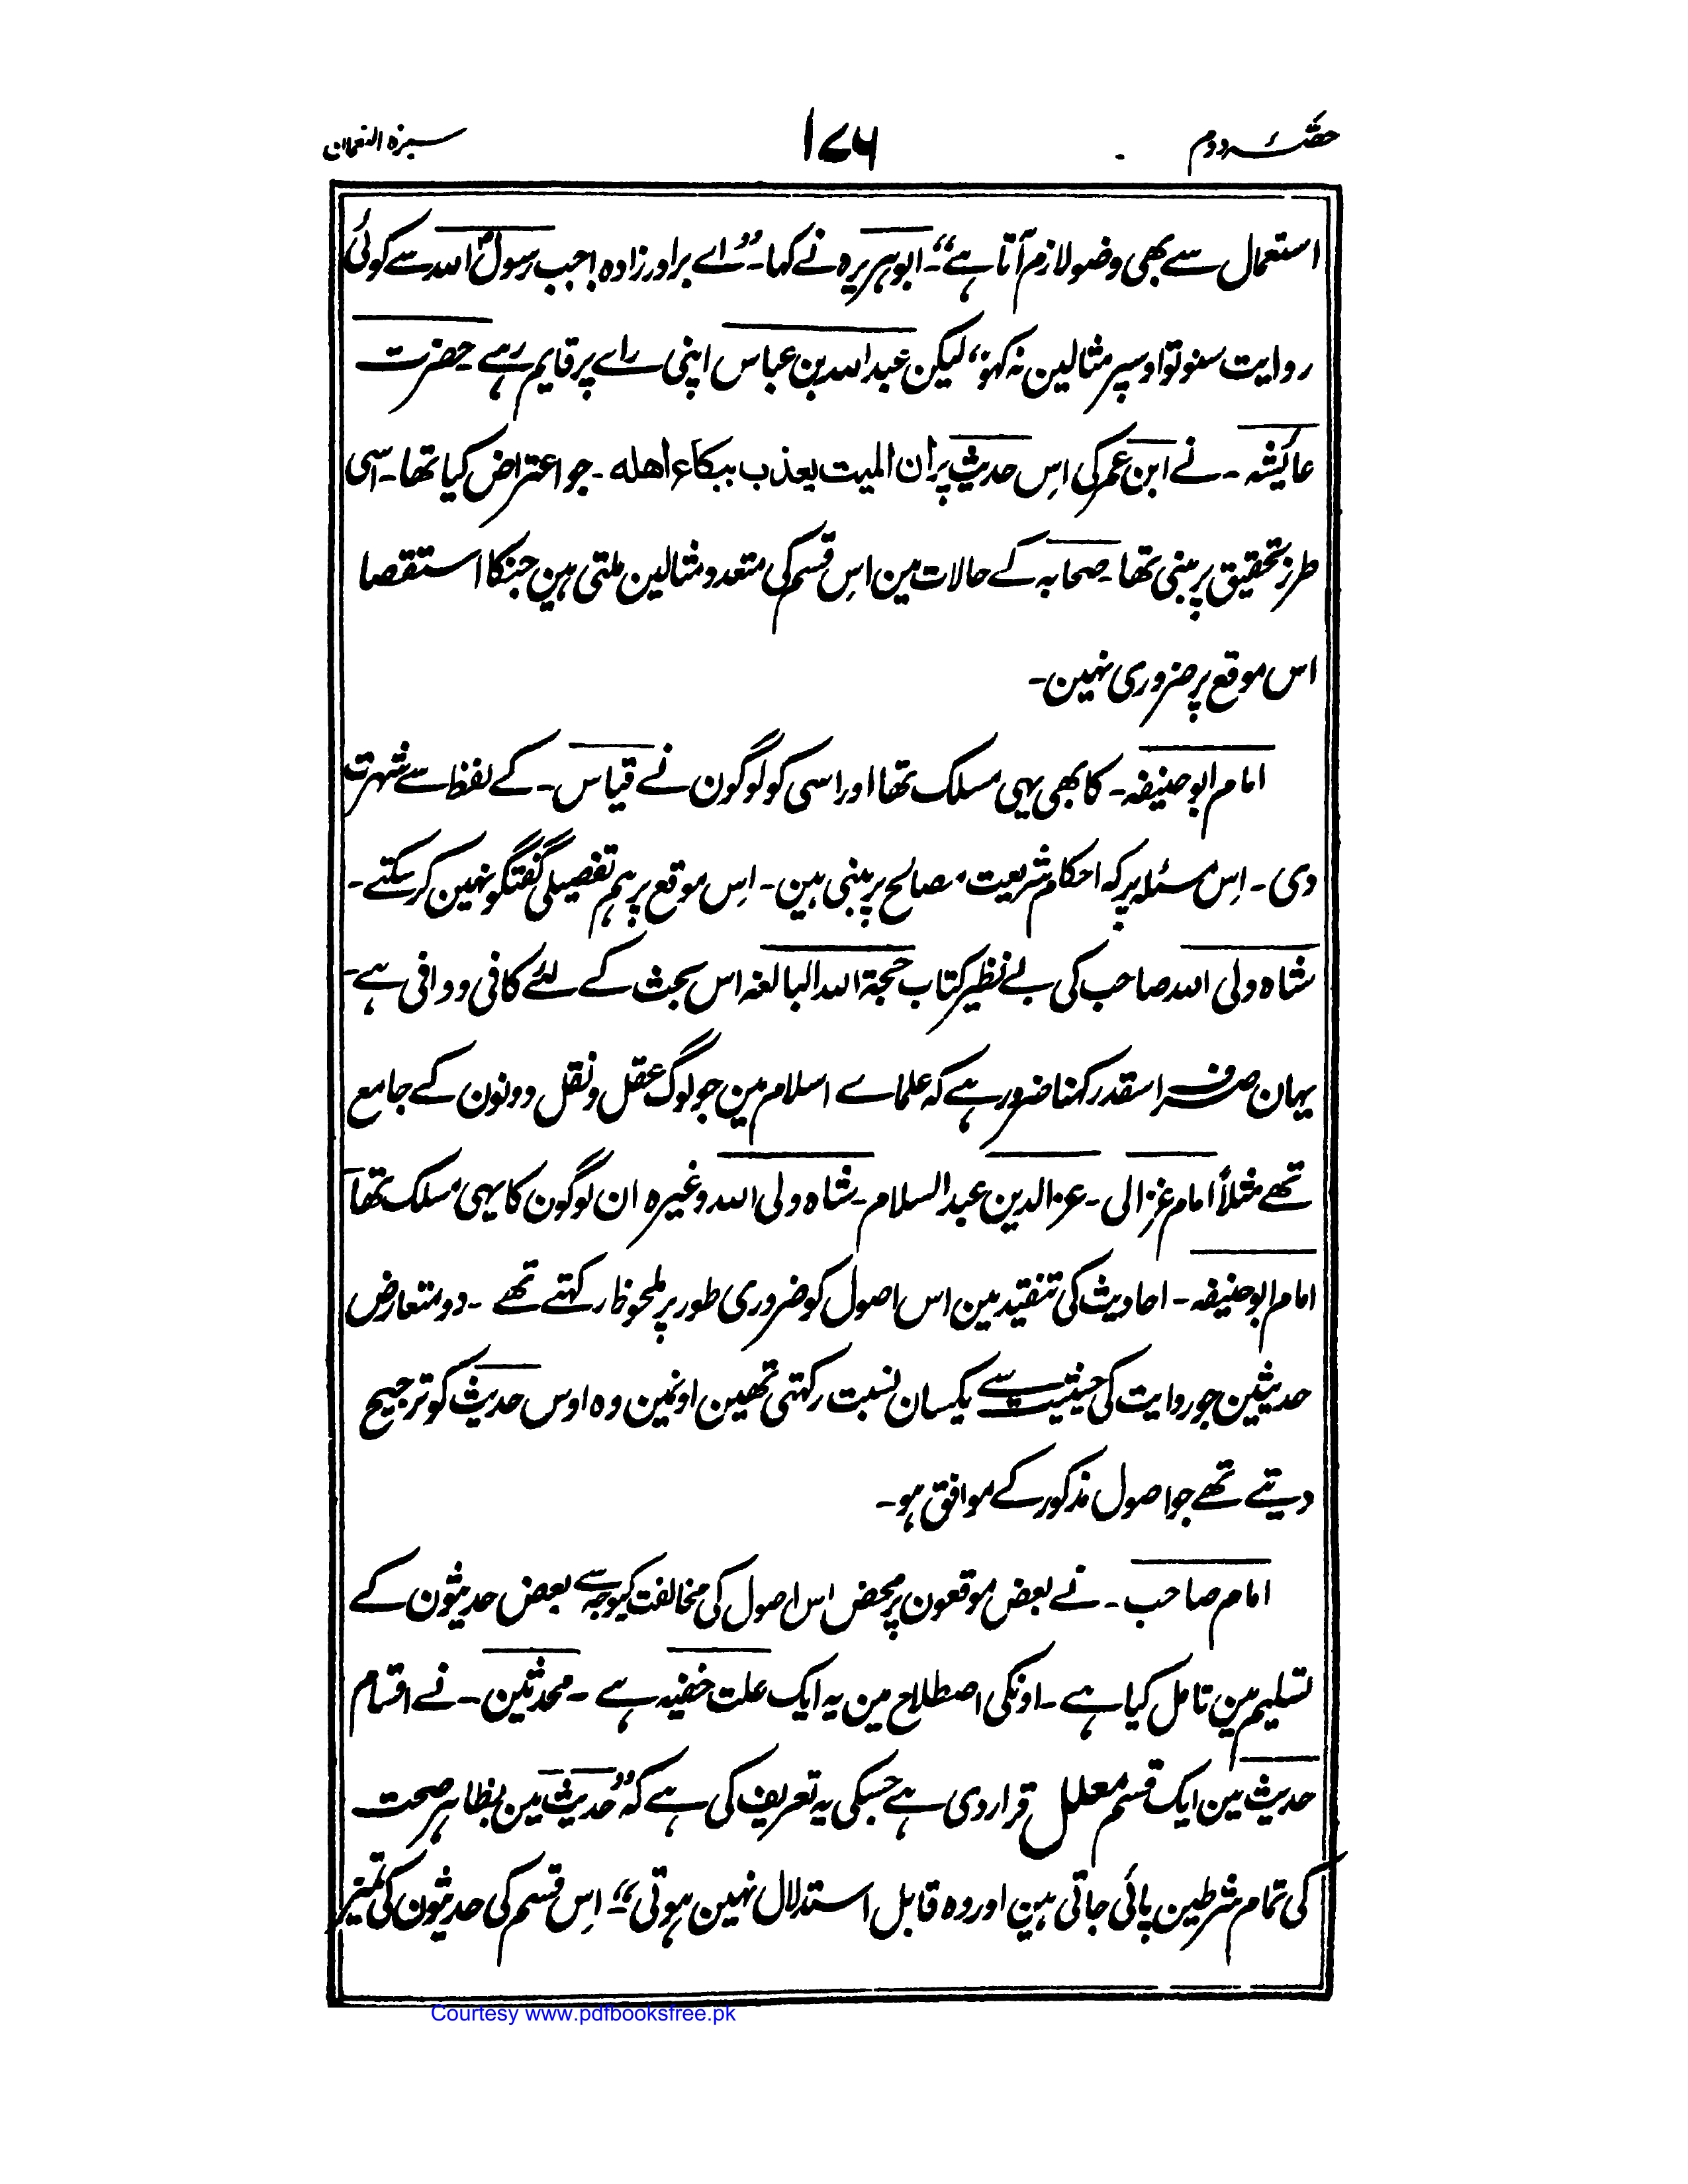 حصّہ دوم
۱۷۶
سیرۃ النعمان
استعمال سے بھی وضو لازم آتا ہے“۔ ابوہریرہ نے کہا۔ ”اے برادر زادہ! جب رسولؐ اللہ سے کوئی
روایت سنو تو اوسپر مثالین نہ کہو“ لیکن عبداللہ بن عباس اپنی راے پر قایم رہے۔ حضرت
عائیشہ۔ نے ابن عمر کی اِس حدیث پر ان المیت یعذب ببکاء اھلہ۔ جو اعتراض کیا تھا۔ اسی
طرز تحقیق پر مبنی تھا۔ صحابہ کے حالات مین اس قسم کی متعدد مثالین ملتی ہین جنکا استقصا
اس موقع پر ضروری نہین۔
امام ابو حنیفہ۔ کا بھی یہی مسلک تھا اور اسی کو لوگون نے قیاس۔ کے لفظ سے شہرت
دی۔ اِس مسئلہ پر کہ احکام شریعت مصالح پر مبنی ہین۔ اِس موقع پر ہم تفصیلی گفتگو نہین کر سکتے۔
شاہ ولی اللہ صاحب کی بے نظیر کتاب حجۃ اللہ البالغہ اس بحث کے لئے کافی و وافی ہے۔
یہان صرف اسقدر کہنا ضرور ہے کہ علماے اسلام مین جو لوگ عقل و نقل دونون کے جامع
تھے مثلاً امام غزالی۔ عز الدین عبدالسلام۔ شاہ ولی اللہ وغیرہ ان لوگون کا یہی مسلک تھا
امام ابو حنیفہ۔ احادیث کی تنقید مین اس اصول کو ضروری طور پر ملحوظ رکہتے تھے۔ دو متعارض
حدیثین جو روایت کی حیثیت سے یکسان نسبت رکہتی تھین اونمین وہ اوس حدیث کو ترجیح
دیتے تھے جو اصول مذکور کے موافق ہو۔
امام صاحب۔ نے بعض موقعون پر محض اس اصول کی مخالفت کیوجہ سے بعض حدیثون کے
تسلیم مین تامل کیا ہے۔ اونکی اصطلاح مین یہ ایک علت خفیہ ہے۔ محدثین۔ نے اقسام
حدیث مین ایک قسم معلل قرار دی ہے جسکی یہ تعریف کی ہے کہ ”حدیث مین بظاہر صحت
کی تمام شرطین پائی جاتی ہین اور وہ قابل استدلال نہین ہوتی“۔ اِس قسم کی حدیثون کی تمیز
Courtesy www.pdfbooksfree.pk